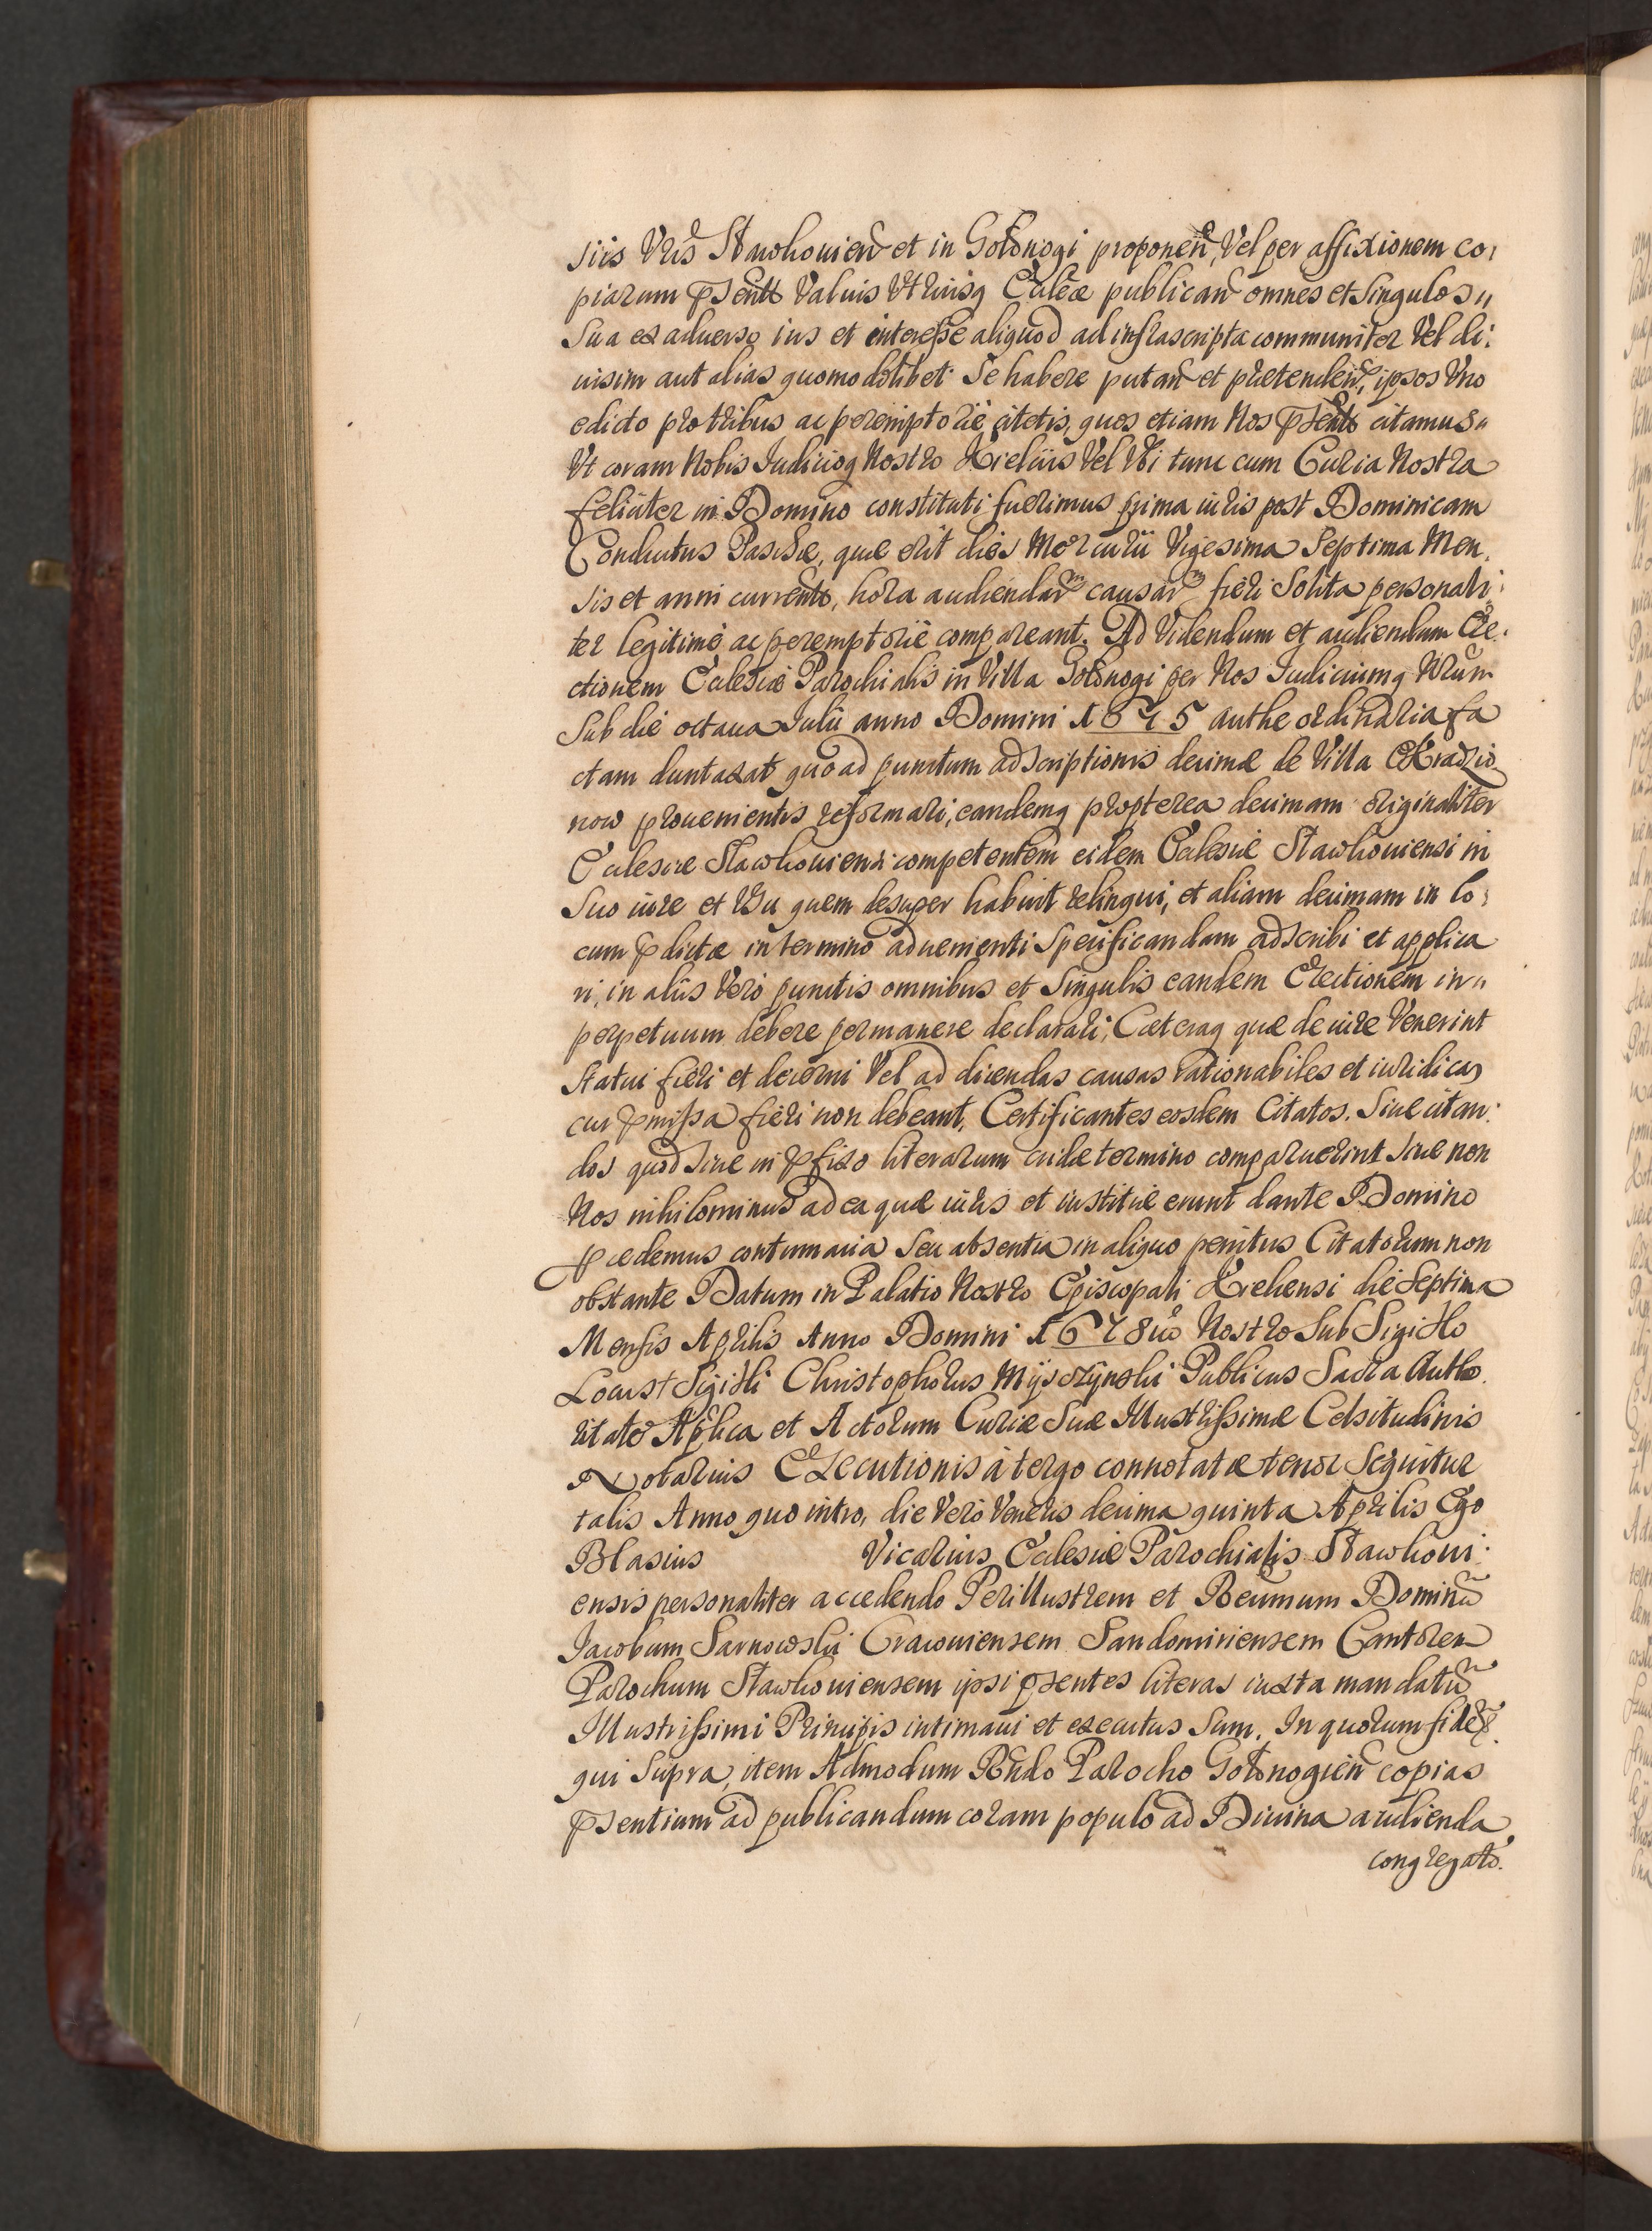 siis Vris Sławkouien et in Gołonogi proponen, Vel per affixionem co,
piarum psentt Valuis Vtriusq Eccleæ publican omnes et singulos,,
sua ex aduerso ius et interesse aliquod ad infrascripta communiter Vel di,
uisim aut alias quomodolibet se habere putan et prætenden, ipsos Vno
edicto pro tribus ac peremptorie citetis, quos etiam Nos psentt citamus,,
Vt coram Nobis Iudicioq Nostro Kielciis Vel Vbi tunc cum Curia Nostra
feliciter in Domino constituti fuerimus prima iuris post Dominicam
Conductus Paschæ, quæ erit dies Mercurii Vigesima Septima Men,
sis et anni currentt, hora audiendar causar fieri solita personali,
ter legitime ac peremptorie compareant. Ad Videndum et audiendum Ere,
ctionem Ecclesiæ Parochialis in Villa Gołonogi per Nos Iudiciumq Nrum
sub die octaua Iulii anno Domini 1675 authe ordinaria fa
ctam duntaxat quoad punctum adscriptionis decimæ de Villa Stradzio
now prouenientis reformari, eandemq propterea decimam originaliter
Ecclesiæ Sławkouiensi competentem eidem Ecclesiæ Sławkouiensi in
suo iure et Vsu quem desuper habuit relinqui, et aliam decimam in lo,
cum pdictæ in termino aduenienti specificandam adscribi et applica
ri, in aliis Vero punctis omnibus et singulis eandem Erectionem in,,
perpetuum debere permanere declarari; Cæteraq quæ de iure Venerint
statui fieri et decerni Vel ad dicendas causas rationabiles et iuridicas
cur pmissa fieri non debeant. Certificantes eosdem Citatos. Siue citan,
dos quod siue in pfixo literarum cidæ termino comparuerint siue non
Nos nihilominus ad ea quæ iuris et iustitiæ erunt dante Domino
pcedemus contumacia seu absentia in aliquo penitus Citatorum non
obstante Datum in Palatio Nostro Episcopali Kielcensi die Septima
Mensis Aprilis Anno Domini 1678uo Nostro sub Sigillo
Locus + Sigilli Christophorus Myszczynski Publicus Sacra Autho,
ritate Aplica et Actorum Curiæ Suæ Illustrissimæ Celsitudinis
Notarius Executionis à tergo connotatæ tenor sequitur
talis Anno quo intro, die Vero Veneris decima quinta Aprilis Ego
Blasius Vicarius Ecclesiæ Parochialis Sławkoui,
ensis personaliter accedendo Perillustrem et Reumum Dominu
Iacobum Sarnowski Cracouiensem Sandomiriensem Cantorem
Parochum Sławkouiensem ipsi psentes literas iuxta mandatu
Illustrissimi Principis intimaui et executus sum. In quorum fidem
qui supra, item Admodum Rndo Parocho Gołonogien copias
psentium ad publicandum coram populo ad Diuina audienda
congregato.